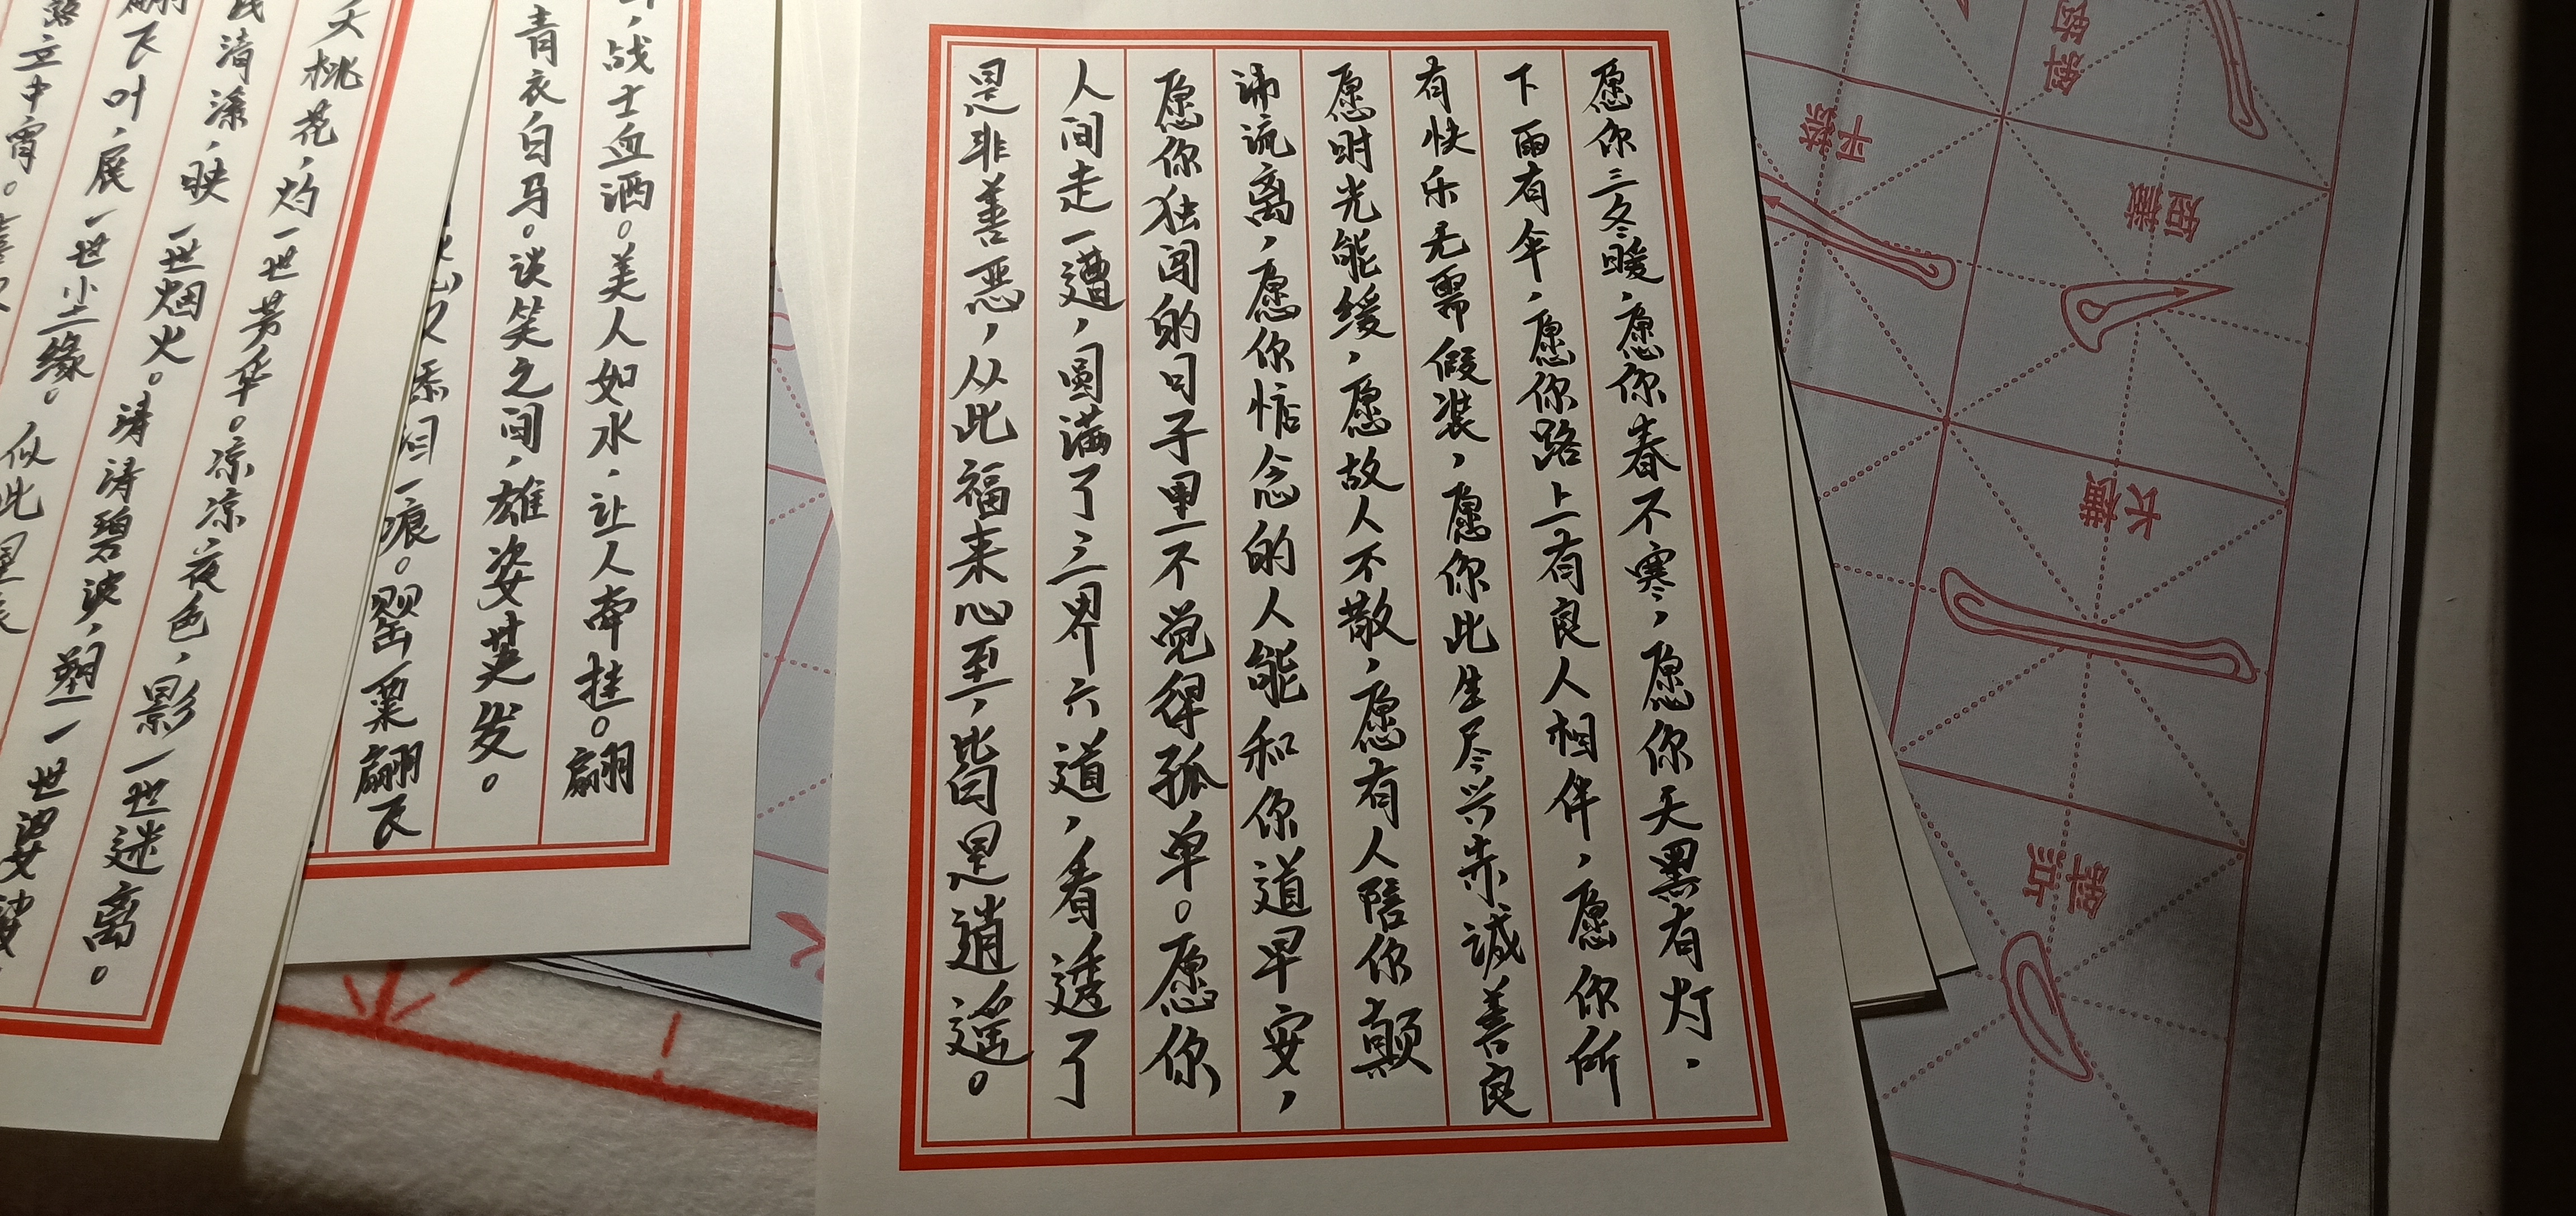 愿你三冬暖，愿你春不寒，愿你天黑有灯，
下雨有伞，愿你路上有良人相伴，愿你所
有快乐无需假装，愿你此生尽兴赤诚善良
愿时光能缓，愿故人不散，愿有人陪你颠
沛流离，愿你惦念的人能和你道早安，
愿你独闯的日子里不觉得孤单。愿你
人间走一遭，圆满了三界六道，看透了
是非善恶，从此福来心至，皆是逍遥。
，战士血洒。美人如水，让人牵挂。翩
青衣白马。谈笑之间，雄姿英发。
一痕。罂粟翩飞
夭桃花，灼一世芳华。凉凉夜色，影一世迷离。
清漾，映一世烟火。涛涛碧波，塑一世婆娑
翩飞叶，展一世尘缘。似此星辰
立中宵。
平捺
短撇
长横
斜点